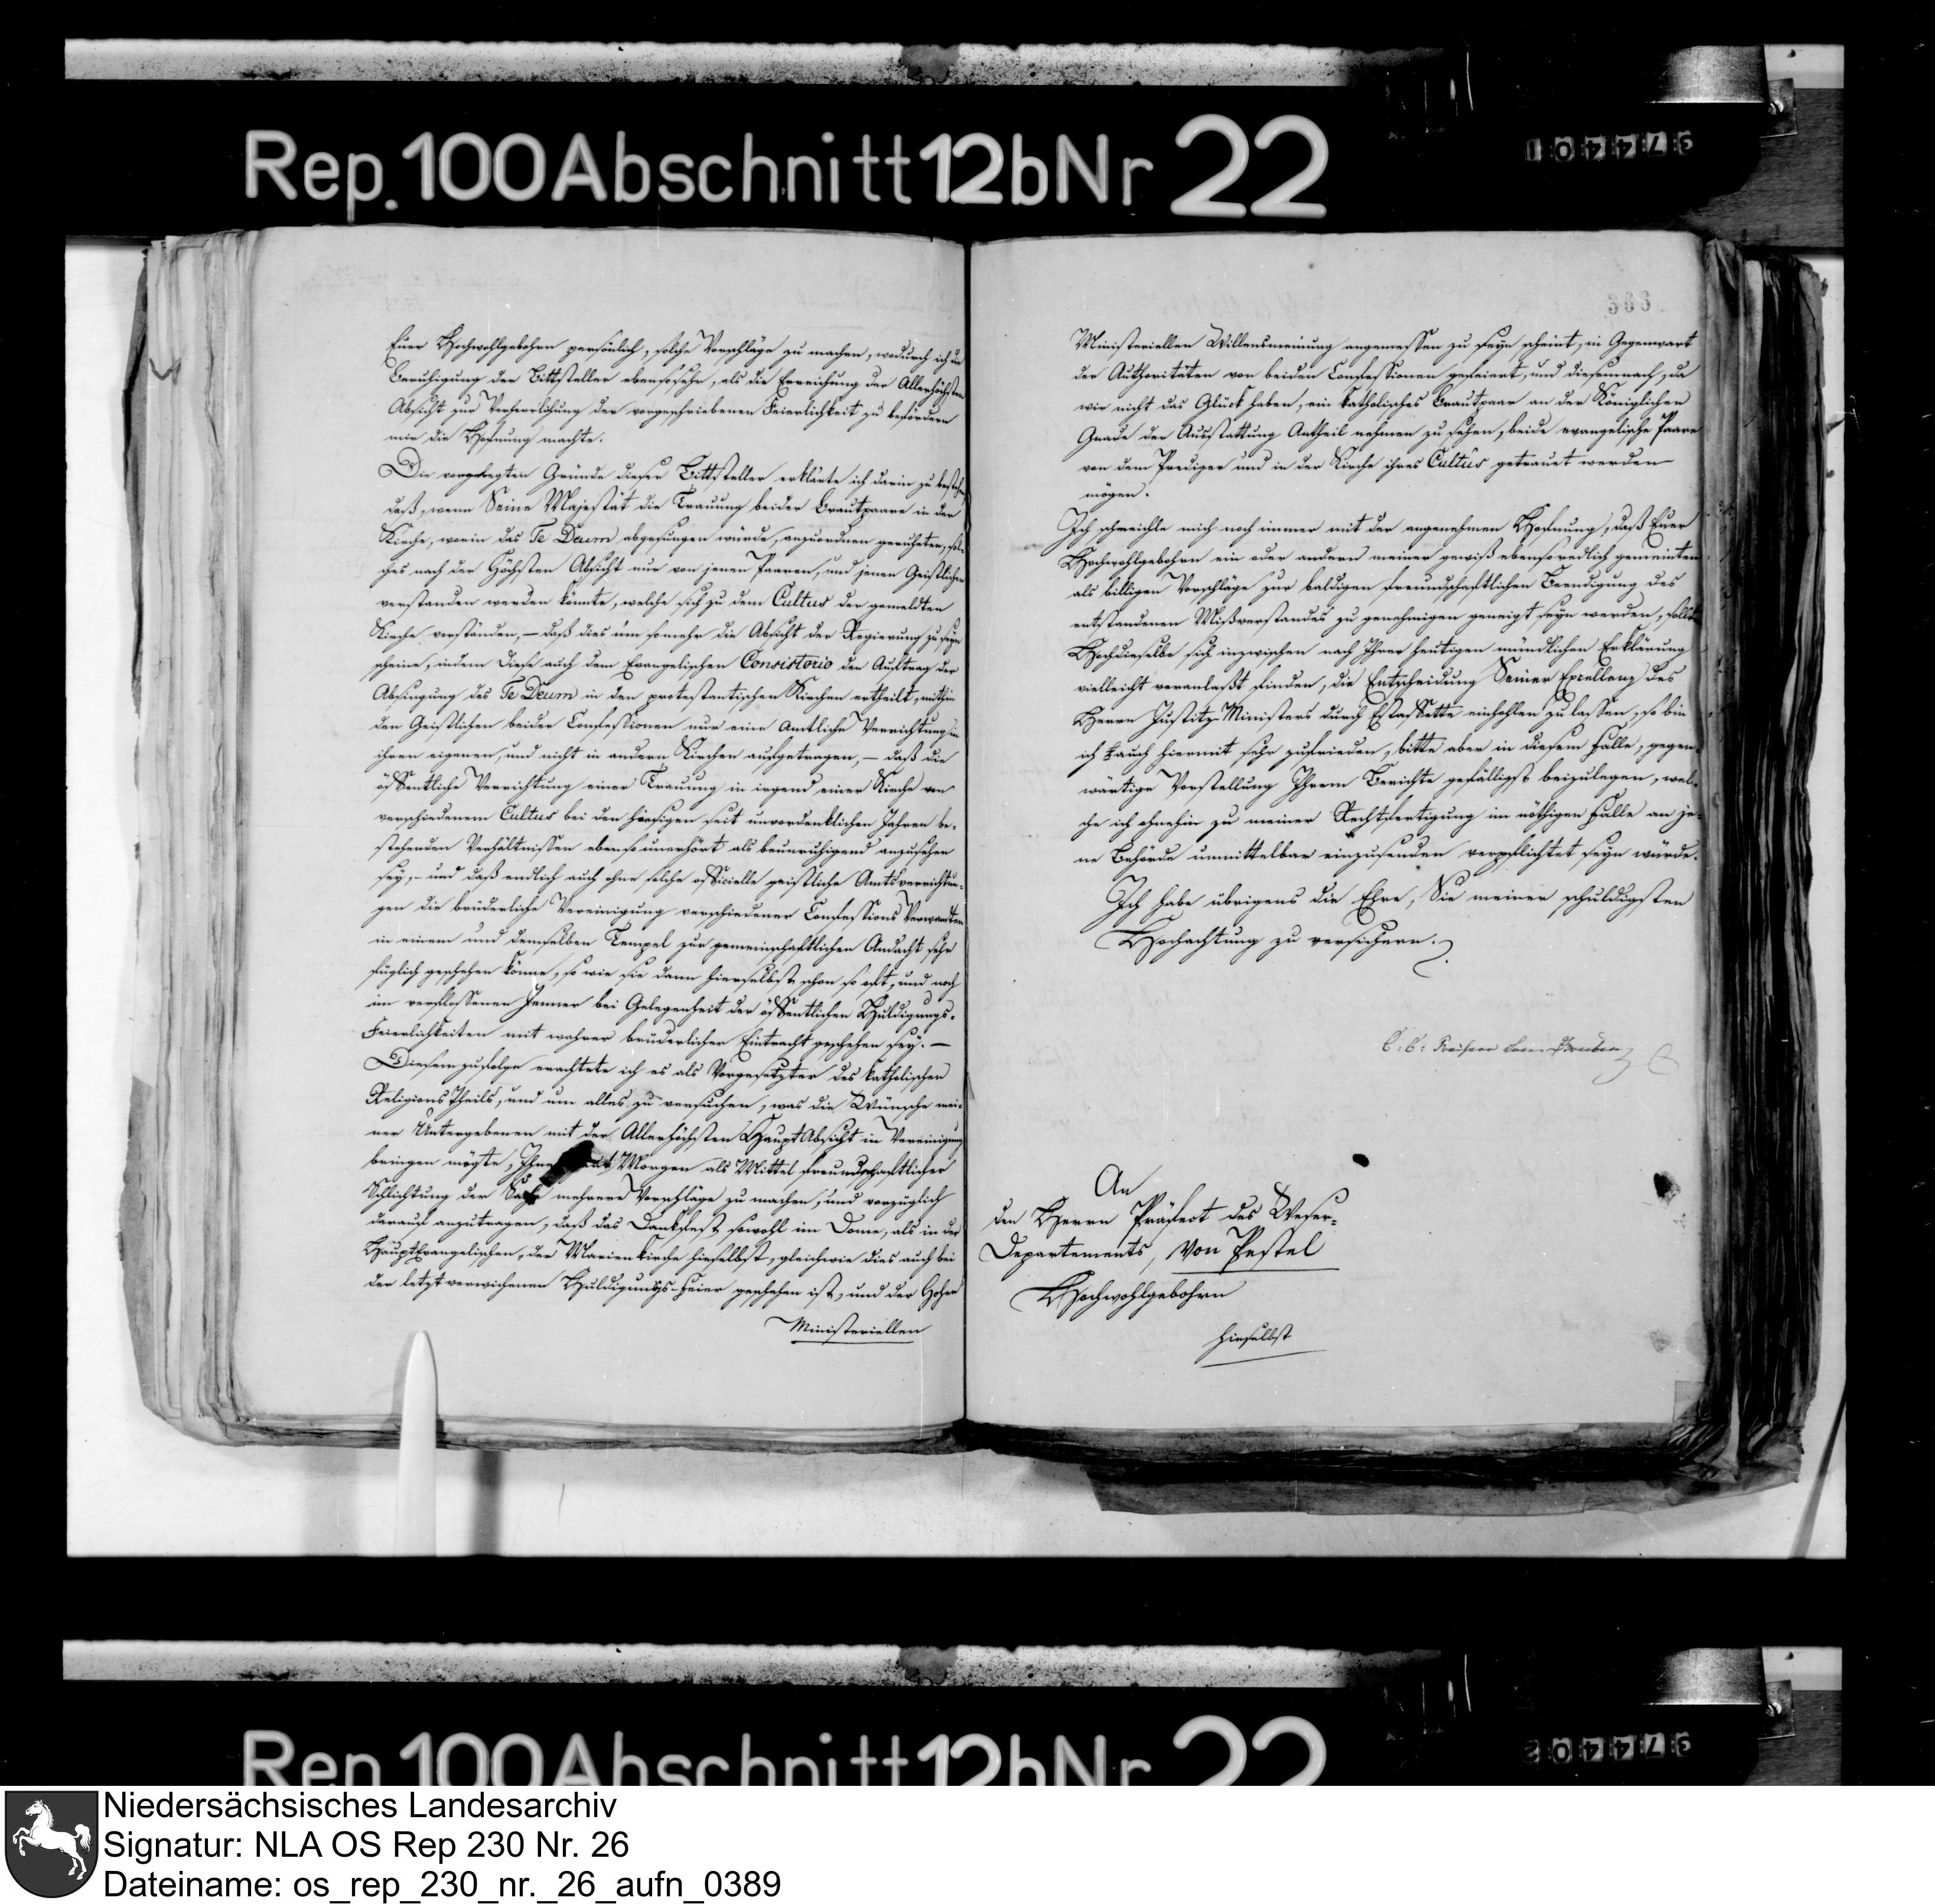 Rep. 100 Abschnitt 12b Nr 22
374401
Euer Hochwohlgebohrn persönlich, solche Vorschläge zu machen, wodurch ich die
Beruhigung der Bittsteller ebensosehr, als die Erreichung der Allerhöchsten
Absicht zur Verherrlichung der vorgeschriebenen Feierlichkeit zu befördern
mir die Hofnung machte.
Die vorgelegten Gründe dieser Bittsteller erklärte ich darin zu bestehen
daß, wenn Seine Majestät die Trauung beider Brautpaare in der
Kirche, worin das Te Deum abgesungen würde, anzuordnen geruheten, sol-
ches nach der Höchsten Absicht nur von jenen Paaren, und jenen Geistlichen
verstanden werden könnte, welche sich zu dem Cultus der gemeldten
Kirche verständen, – daß dies um somehr die Absicht der Regierung zu seyn
scheine, indem diese auch dem Evangelischen Consistorio den Auftrag der
Absingung des Te Deum in den protestantischen Kirchen ertheilt, mithin
den Geistlichen beider Confessionen nur eine Amtliche Verrichtung in
ihren eigenen, und nicht in andern Kirchen aufgetragen, – daß die
öffentliche Verrichtung einer Trauung in irgend einer Kirche von
verschiedenem Cultus bei den hiesigen seit unvordenklichen Jahren be-
stehenden Verhältnissen ebenso unerhört als beunruhigend anzusehen
sey, – und daß endlich auch ohne solche officielle geistliche Amtsverrichtun-
gen die brüderliche Vereinigung verschiedener Confessions Verwandten
in einem und demselben Tempel zur gemeinschaftlichen Andacht sehr
füglich geschehen könne, so wie sie dann hierselbst schon so oft, und noch
im verflossenen Jenner bei Gelegenheit der öffentlichen Huldigungs-
Feierlichkeiten mit wahrer brüderlicher Eintracht geschehen sey. –
Diesemzufolge erachtete ich es als Vorgesetzter des katholischen
Religions Theils, und um alles zu versuchen, was die Wünsche mei-
ner Untergebenen mit der Allerhöchsten Haupt Absicht in Vereinigung
bringen mögte, Morgen als Mittel freundschaftlicher
Schlichtung der Sache mehrere Vorschläge zu machen, und vorzüglich
darauf anzutragen, daß das Dankfest sowohl im Dome, als in der
Haupt Evangelischen, der Marien Kirche hieselbst, gleichwie dies auch bei
der letzt verwichenen Huldigungs-Feier geschehen ist, und der Hohen
Ministeriellen
366
Ministeriellen Willensmeinung angemessen zu seyn scheint, in Gegenwart
der Authoritäten von beiden Confessionen gefeiert, und diesemnach, da
wir nicht das Glück haben, ein katholisches Brautpaar an der Königlichen
Gnade der Ausstattung Antheil nehmen zu sehen, beide evangelische Paare
von dem Prediger und in der Kirche ihres Cultus getrauet werden
mögen.
Ich schmeichle mich noch immer mit der angenehmen Hofnung, daß Euer
Hochwohlgebohrn ein oder andern meiner gewiß ebenso redlich gemeinten
als billigen Vorschläge zur baldigen freundschaftlichen Beendigung des
entstandenen Mißverstandes zu genehmigen geneigt seyn werden, sollten
Hochdieselbe sich inzwischen nach Ihrer heutigen mündlichen Erklärung
vielleicht veranlaßt finden, die Entscheidung Seiner Excellenz des
Herrn Justitz-Ministers durch Estaffette einhohlen zu lassen, so bin
ich auch hiermit sehr zufrieden, bitte aber in diesem Falle, gegen-
wärtige Vorstellung Ihrem Berichte gefälligst beizulegen, wel-
che ich ohnehin zu meiner Rechtfertigung im nöthigen Falle an je-
ne Behörde unmittelbar einzusenden verpflichtet seyn würde.
Ich habe übrigens die Ehre, Sie meiner schuldigsten
Hochachtung zu versichern.
An
den Herrn Präfect des Weser-
Departements, von Pestel
Hochwohlgebohrn
hieselbst
Rep. 100 Abschnitt 12b Nr 22
374402
Niedersächsisches Landesarchiv
Signatur: NLA OS Rep 230 Nr. 26
Dateiname: os_rep_230_nr._26_aufn_0389